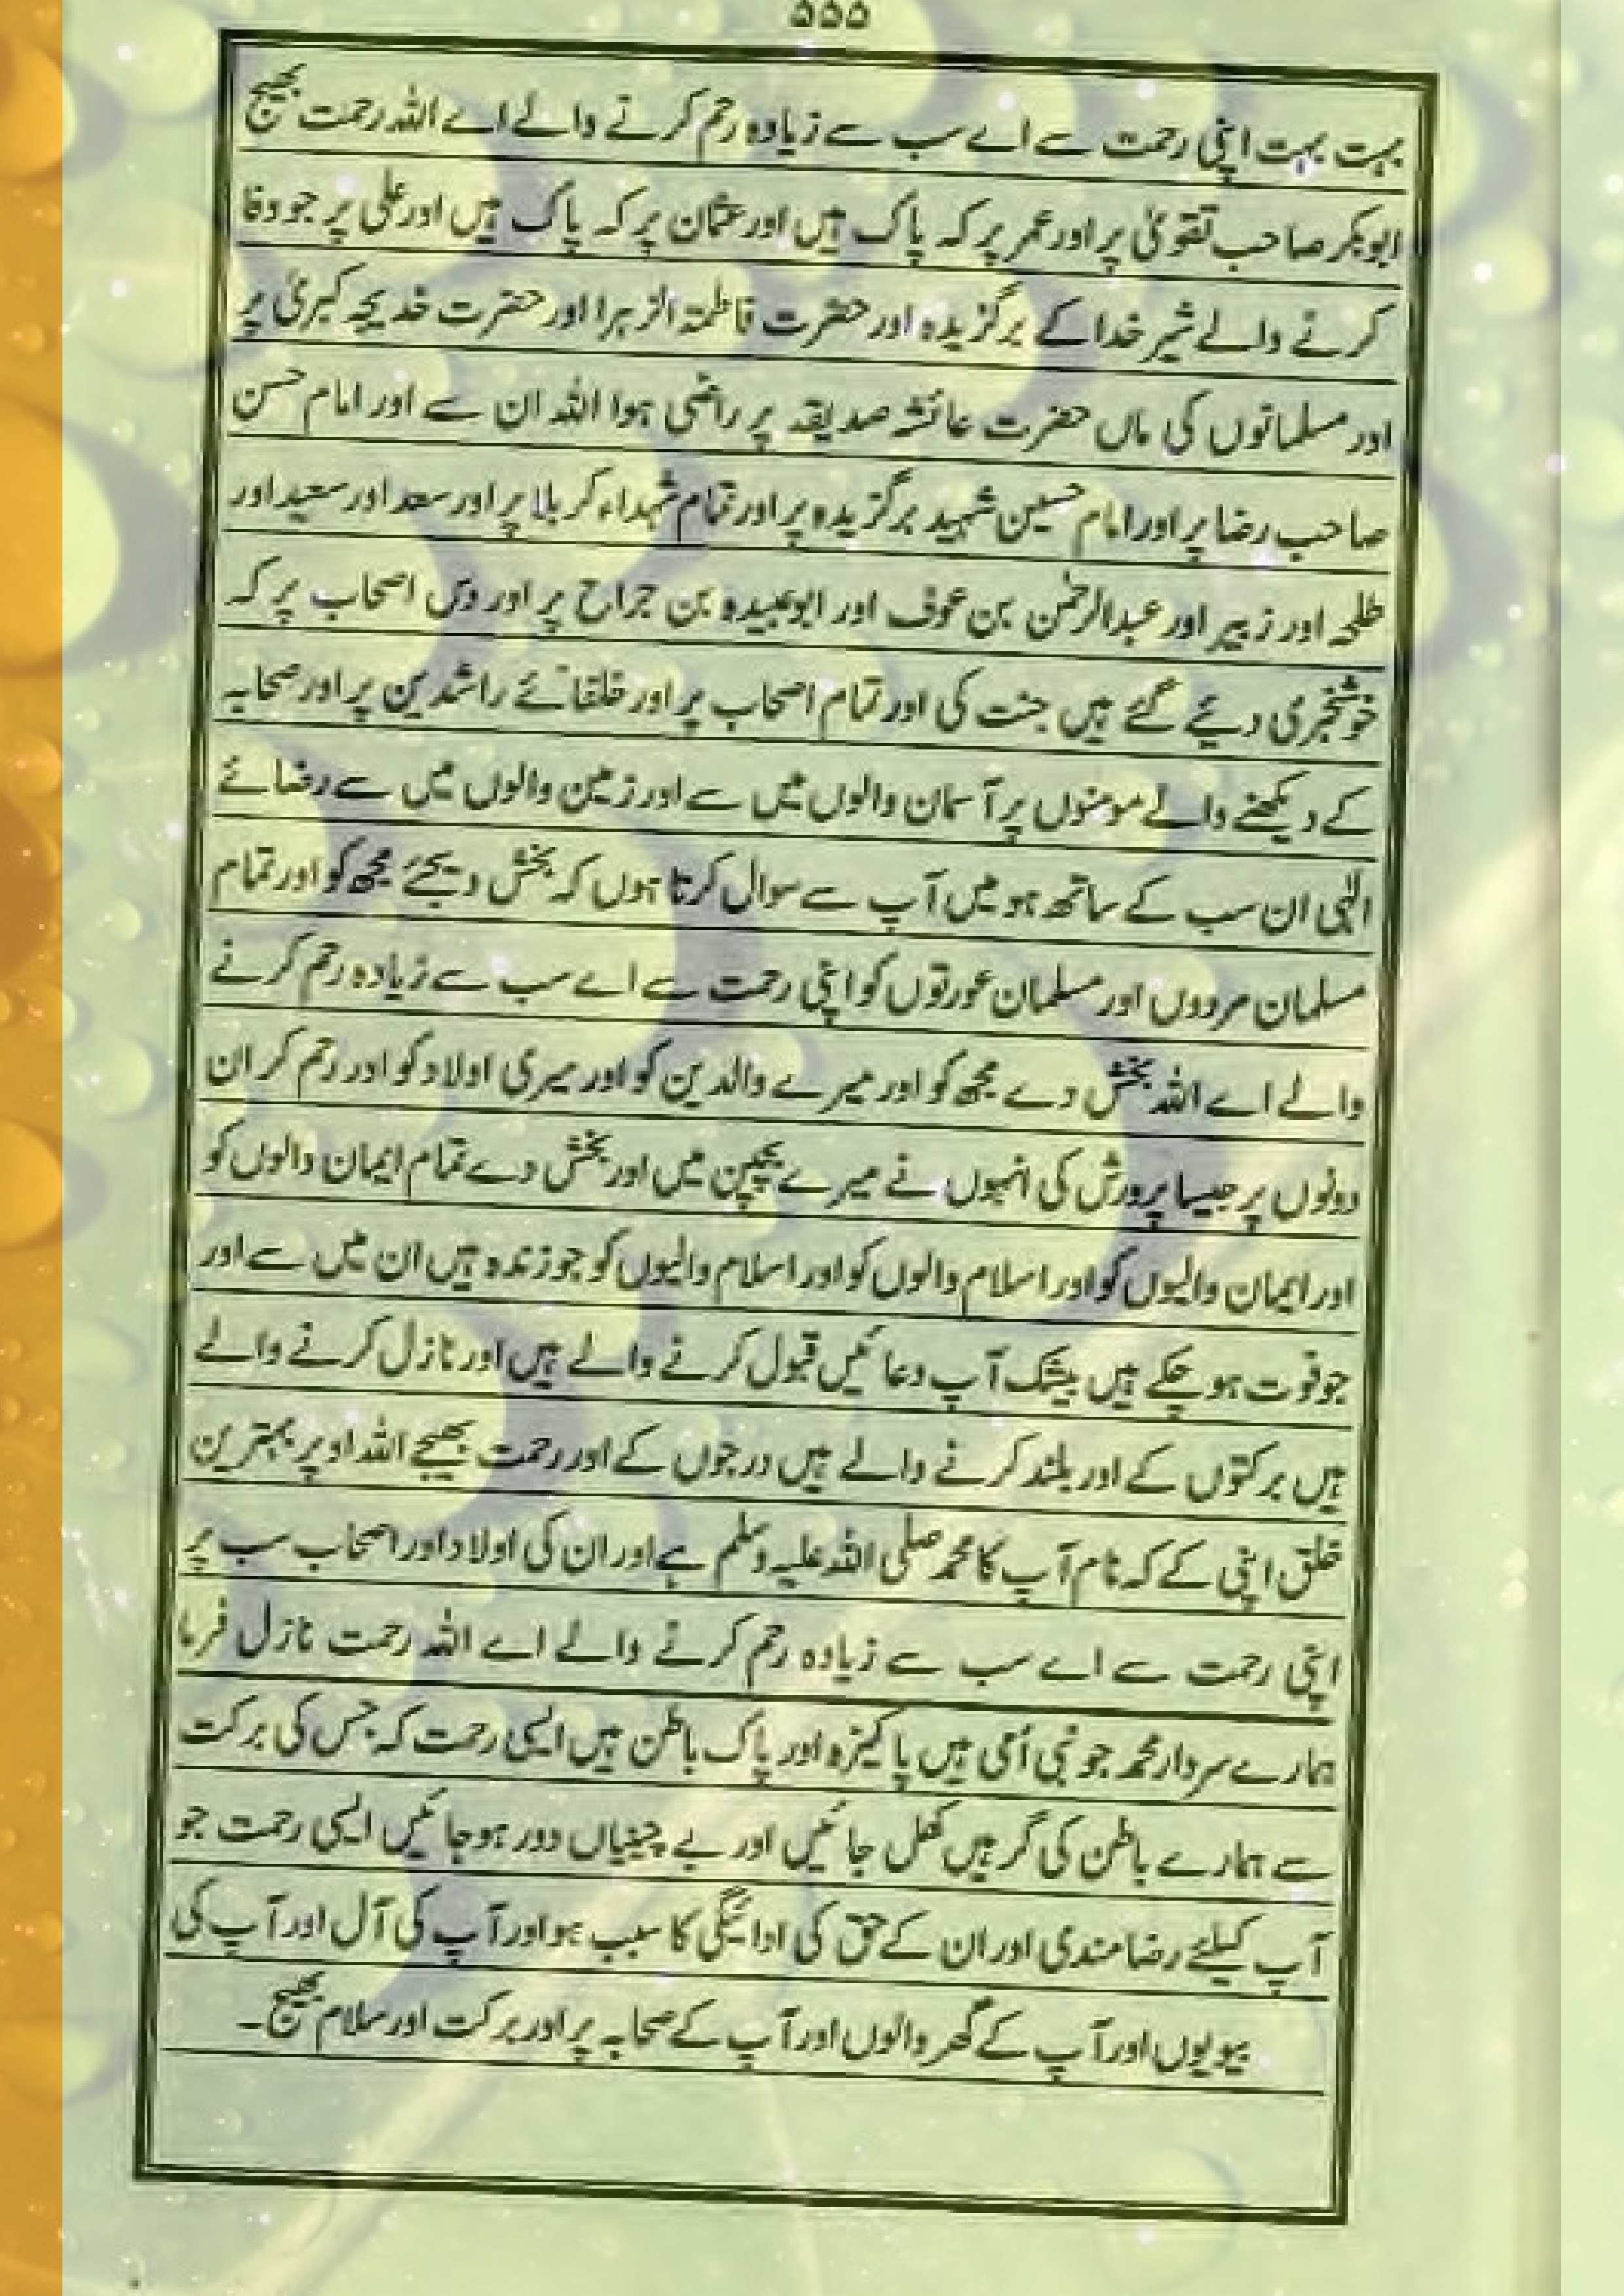 ۵۵۵
بہت بہت اپنی رحمت سے اے سب سے زیادہ رحم کرنے والے اے اللہ رحمت بھیج
ابوبکر صاحب تقویٰ پر اور عمر پر کہ پاک ہیں اور عثمان پر کہ پاک ہیں اور علی پر جو وفا
کرنے والے شیر خدا کے برگزیدہ اور حضرت فاطمۃ الزہرا اور حضرت خدیجہ کبریٰ پر
اور مسلمانوں کی ماں حضرت عائشہ صدیقہ پر راضی ہوا اللہ ان سے اور امام حسن
صاحب رضا پر اور امام حسین شہید برگزیدہ پر اور تمام شہداء کربلا پر اور سعد اور سعید اور
طلحہ اور زبیر اور عبدالرحمٰن بن عوف اور ابوعبیدہ بن جراح پر اور دس اصحاب پر کہ
خوشخبری دیئے گئے ہیں جنت کی اور تمام اصحاب پر اور خلفائے راشدین پر اور صحابہ
کے دیکھنے والے مومنوں پر آسمان والوں میں سے اور زمین والوں میں سے رضائے
الٰہی ان سب کے ساتھ ہو میں آپ سے سوال کرتا ہوں کہ بخش دیجئے مجھ کو اور تمام
مسلمان مردوں اور مسلمان عورتوں کو اپنی رحمت سے اے سب سے زیادہ رحم کرنے
والے اے اللہ بخش دے مجھ کو اور میرے والدین کو اور میری اولاد کو اور رحم کر ان
دونوں پر جیسا پرورش کی انہوں نے میرے بچپن میں اور بخش دے تمام ایمان والوں کو
اور ایمان والیوں کو اور اسلام والوں کو اور اسلام والیوں کو جو زندہ ہیں ان میں سے اور
جو فوت ہو چکے ہیں بیشک آپ دعائیں قبول کرنے والے ہیں اور نازل کرنے والے
ہیں برکتوں کے اور بلند کرنے والے ہیں درجوں کے اور رحمت بھیجے اللہ اوپر بہترین
خلق اپنی کے کہ نام آپ کا محمد صلی اللہ علیہ وسلم ہے اور ان کی اولاد اور اصحاب سب پر
اپنی رحمت سے اے سب سے زیادہ رحم کرنے والے اے اللہ رحمت نازل فرما
ہمارے سردار محمد جو نبی اُمی ہیں پاکیزہ اور پاک باطن ہیں ایسی رحمت کہ جس کی برکت
سے ہمارے باطن کی گرہیں کھل جائیں اور بے چینیاں دور ہو جائیں ایسی رحمت جو
آپ کیلئے رضامندی اور ان کے حق کی ادائیگی کا سبب ہو اور آپ کی آل اور آپ کی
بیویوں اور آپ کے گھر والوں اور آپ کے صحابہ پر اور برکت اور سلام بھیج۔